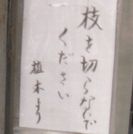 枝を切らないで
ください
植木より